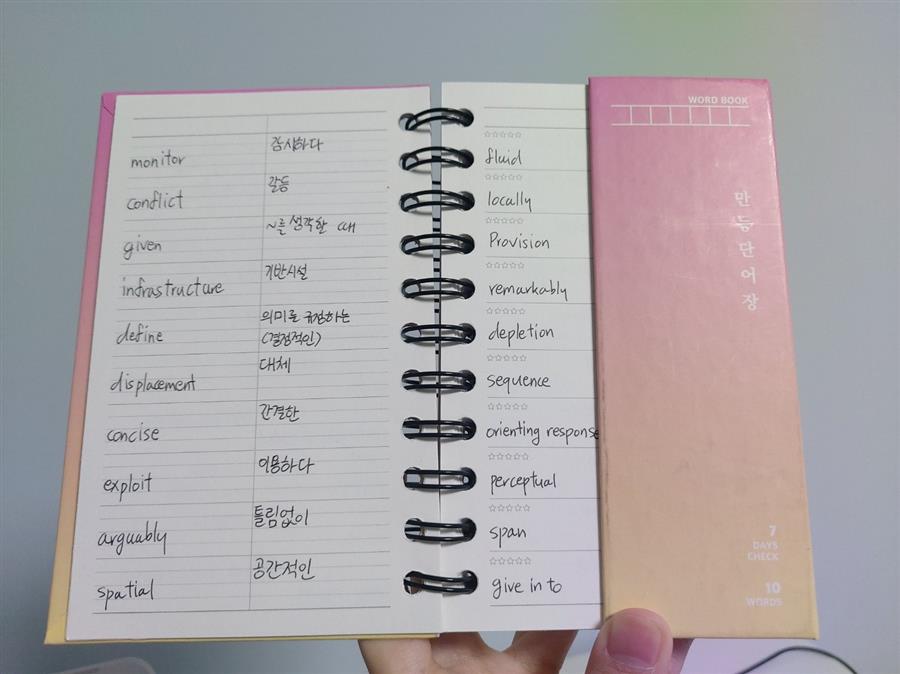 monitor 감시하다
conflict 갈등
given ~를 생각할 때
infrastructure 기반시설
define 의미를 규정하는
(결정적인)
displacement 대체
concise 간결한
exploit 이용하다
arguably 틀림없이
spatial 공간적인
☆☆☆☆☆
fluid
☆☆☆☆☆
locally
☆☆☆☆☆
Provision
☆☆☆☆☆
remarkably
☆☆☆☆☆
depletion
☆☆☆☆☆
sequence
☆☆☆☆☆
orienting response
☆☆☆☆☆
perceptual
☆☆☆☆☆
span
☆☆☆☆☆
give in to
WORD BOOK
만능단어장
7
DAYS
CHECK
10
WORDS